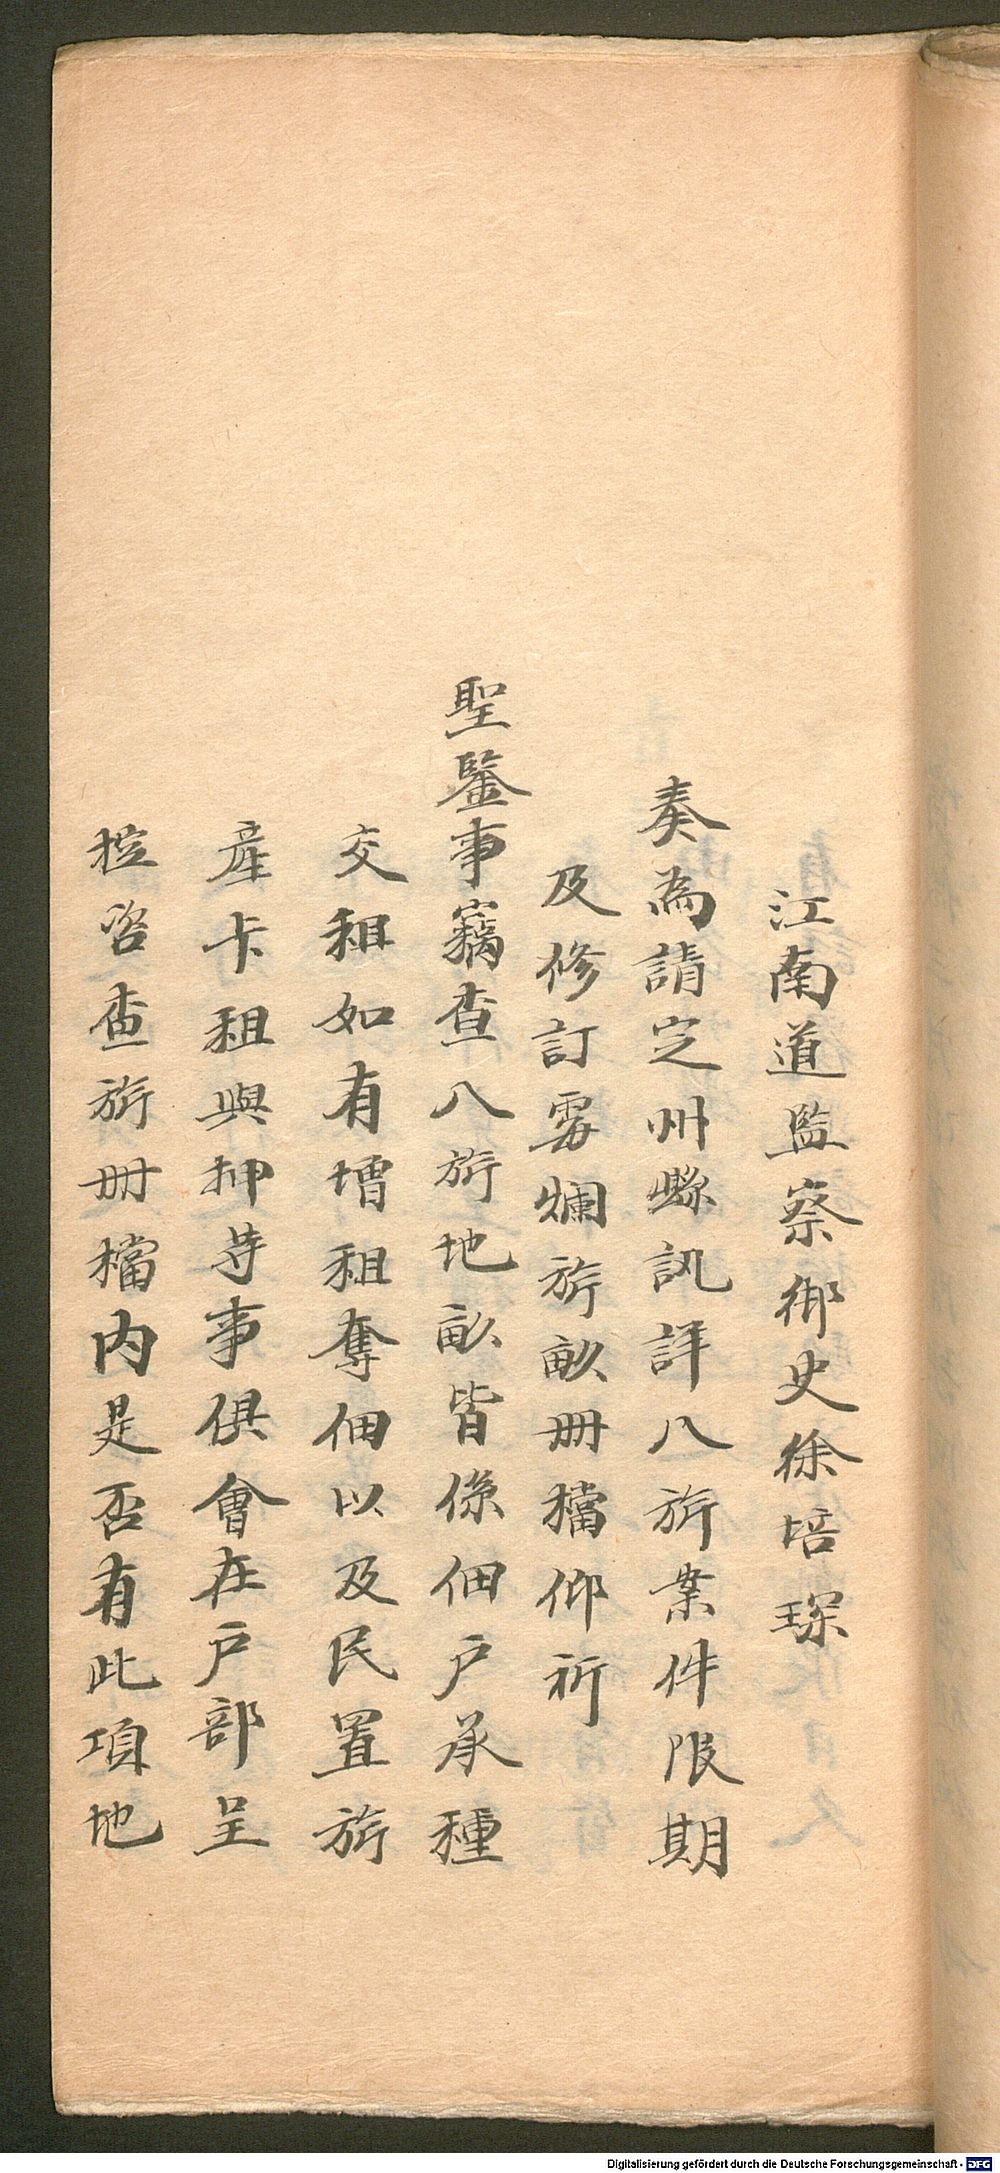 江南道監察御史徐培琛
奏為請定州縣訊詳八旂案件限期
及修訂霉爛旂畝冊檔仰祈
聖鑒事竊查八旂地畝皆係佃戶承種
交租如有增租奪佃以及民置旂
產卡租與押等事俱會在戶部呈
控咨查旂冊檔內是否有此項地
Digitalisierung gefördert durch die Deutsche Forschungsgemeinschaft - DFG